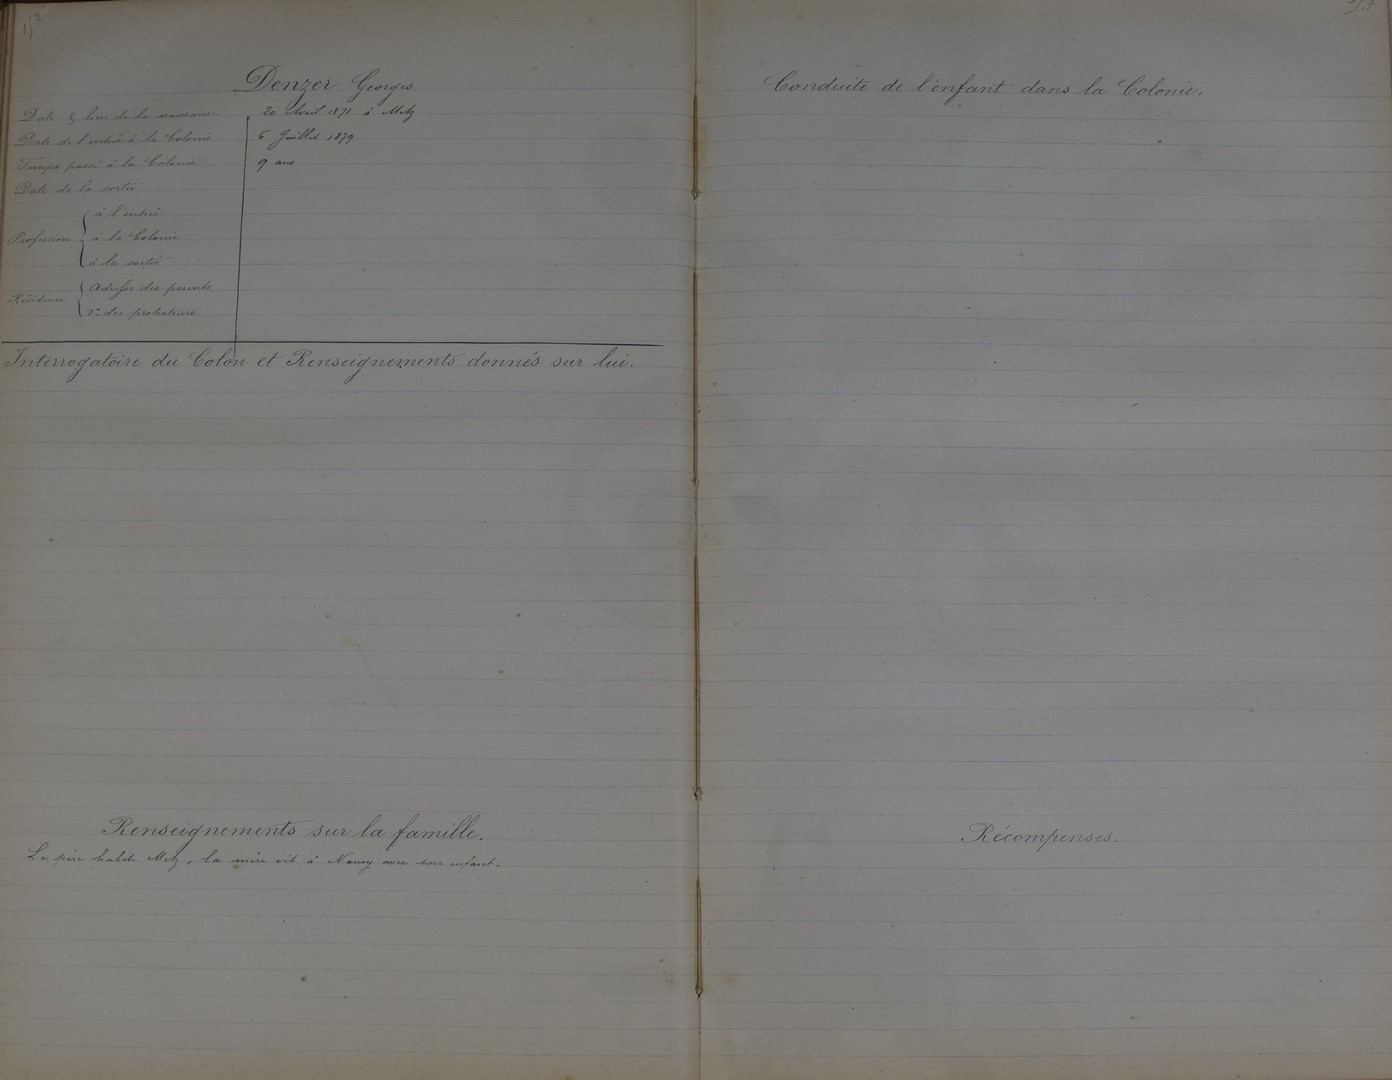 Denzer Georges
Date & lieu de la naissance 20 Avril 1871 à Metz
Date de l'entrée à la Colonie 6 Juillet 1879
Temps passé à la Colonie 9 ans
Date de la sortie
Profession
à l'entrée
à la Colonie
à la sortie
Résidence
Adresse des parents
des protecteurs
Interrogatoire du Colon et Renseignements donnés sur lui.
Renseignements sur la famille.
Le père habite Metz, la mère vit à Nancy avec son enfant.
Conduite de l'enfant dans la Colonie.
Récompenses.